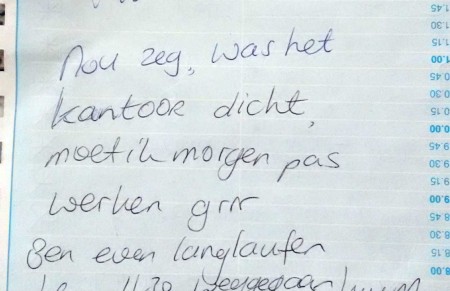 Nou zeg, was het
kantoor dicht,
moet ik morgen pas
werken grrr
Ben even langlaufen
1.45
1.30
1.15
1.00
0.45
0.30
0.15
0.00
9.45
9.30
9.15
9.00
8.45
8.30
8.15
8.00